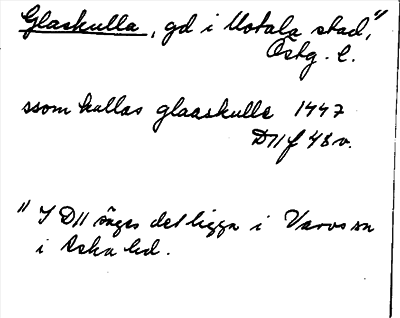 Glaskulla, gd i Motala stad,"
Östg. l.
ssom kallas glaaskulle 1447
D11 f 48 v.
" I D11 säges det ligga i Varvs sn
i Aska hd.